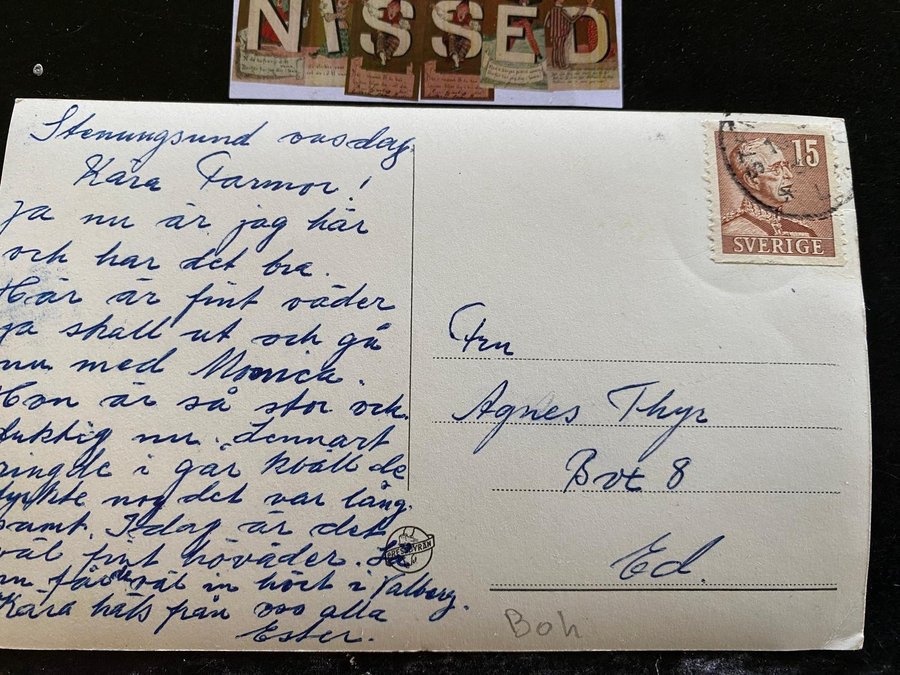 NISSED
Stenungsund onsdag.
Kära Farmor!
Ja nu är jag här
och har det bra.
Här är fint väder
ja skall ut och gå
nu med Monica.
Hon är så stor och
duktig nu. Lennart
ringde i går kväll de
tyckte nog det var lång
samt. I dag är det
väl fint höväder.
nu får väl in höet i Valberg.
Kära häls från oss alla
Ester.
15
SVERIGE
Fru
Agnes Thyr
Box 8
Ed.
PRESSBYRÅN
Boh